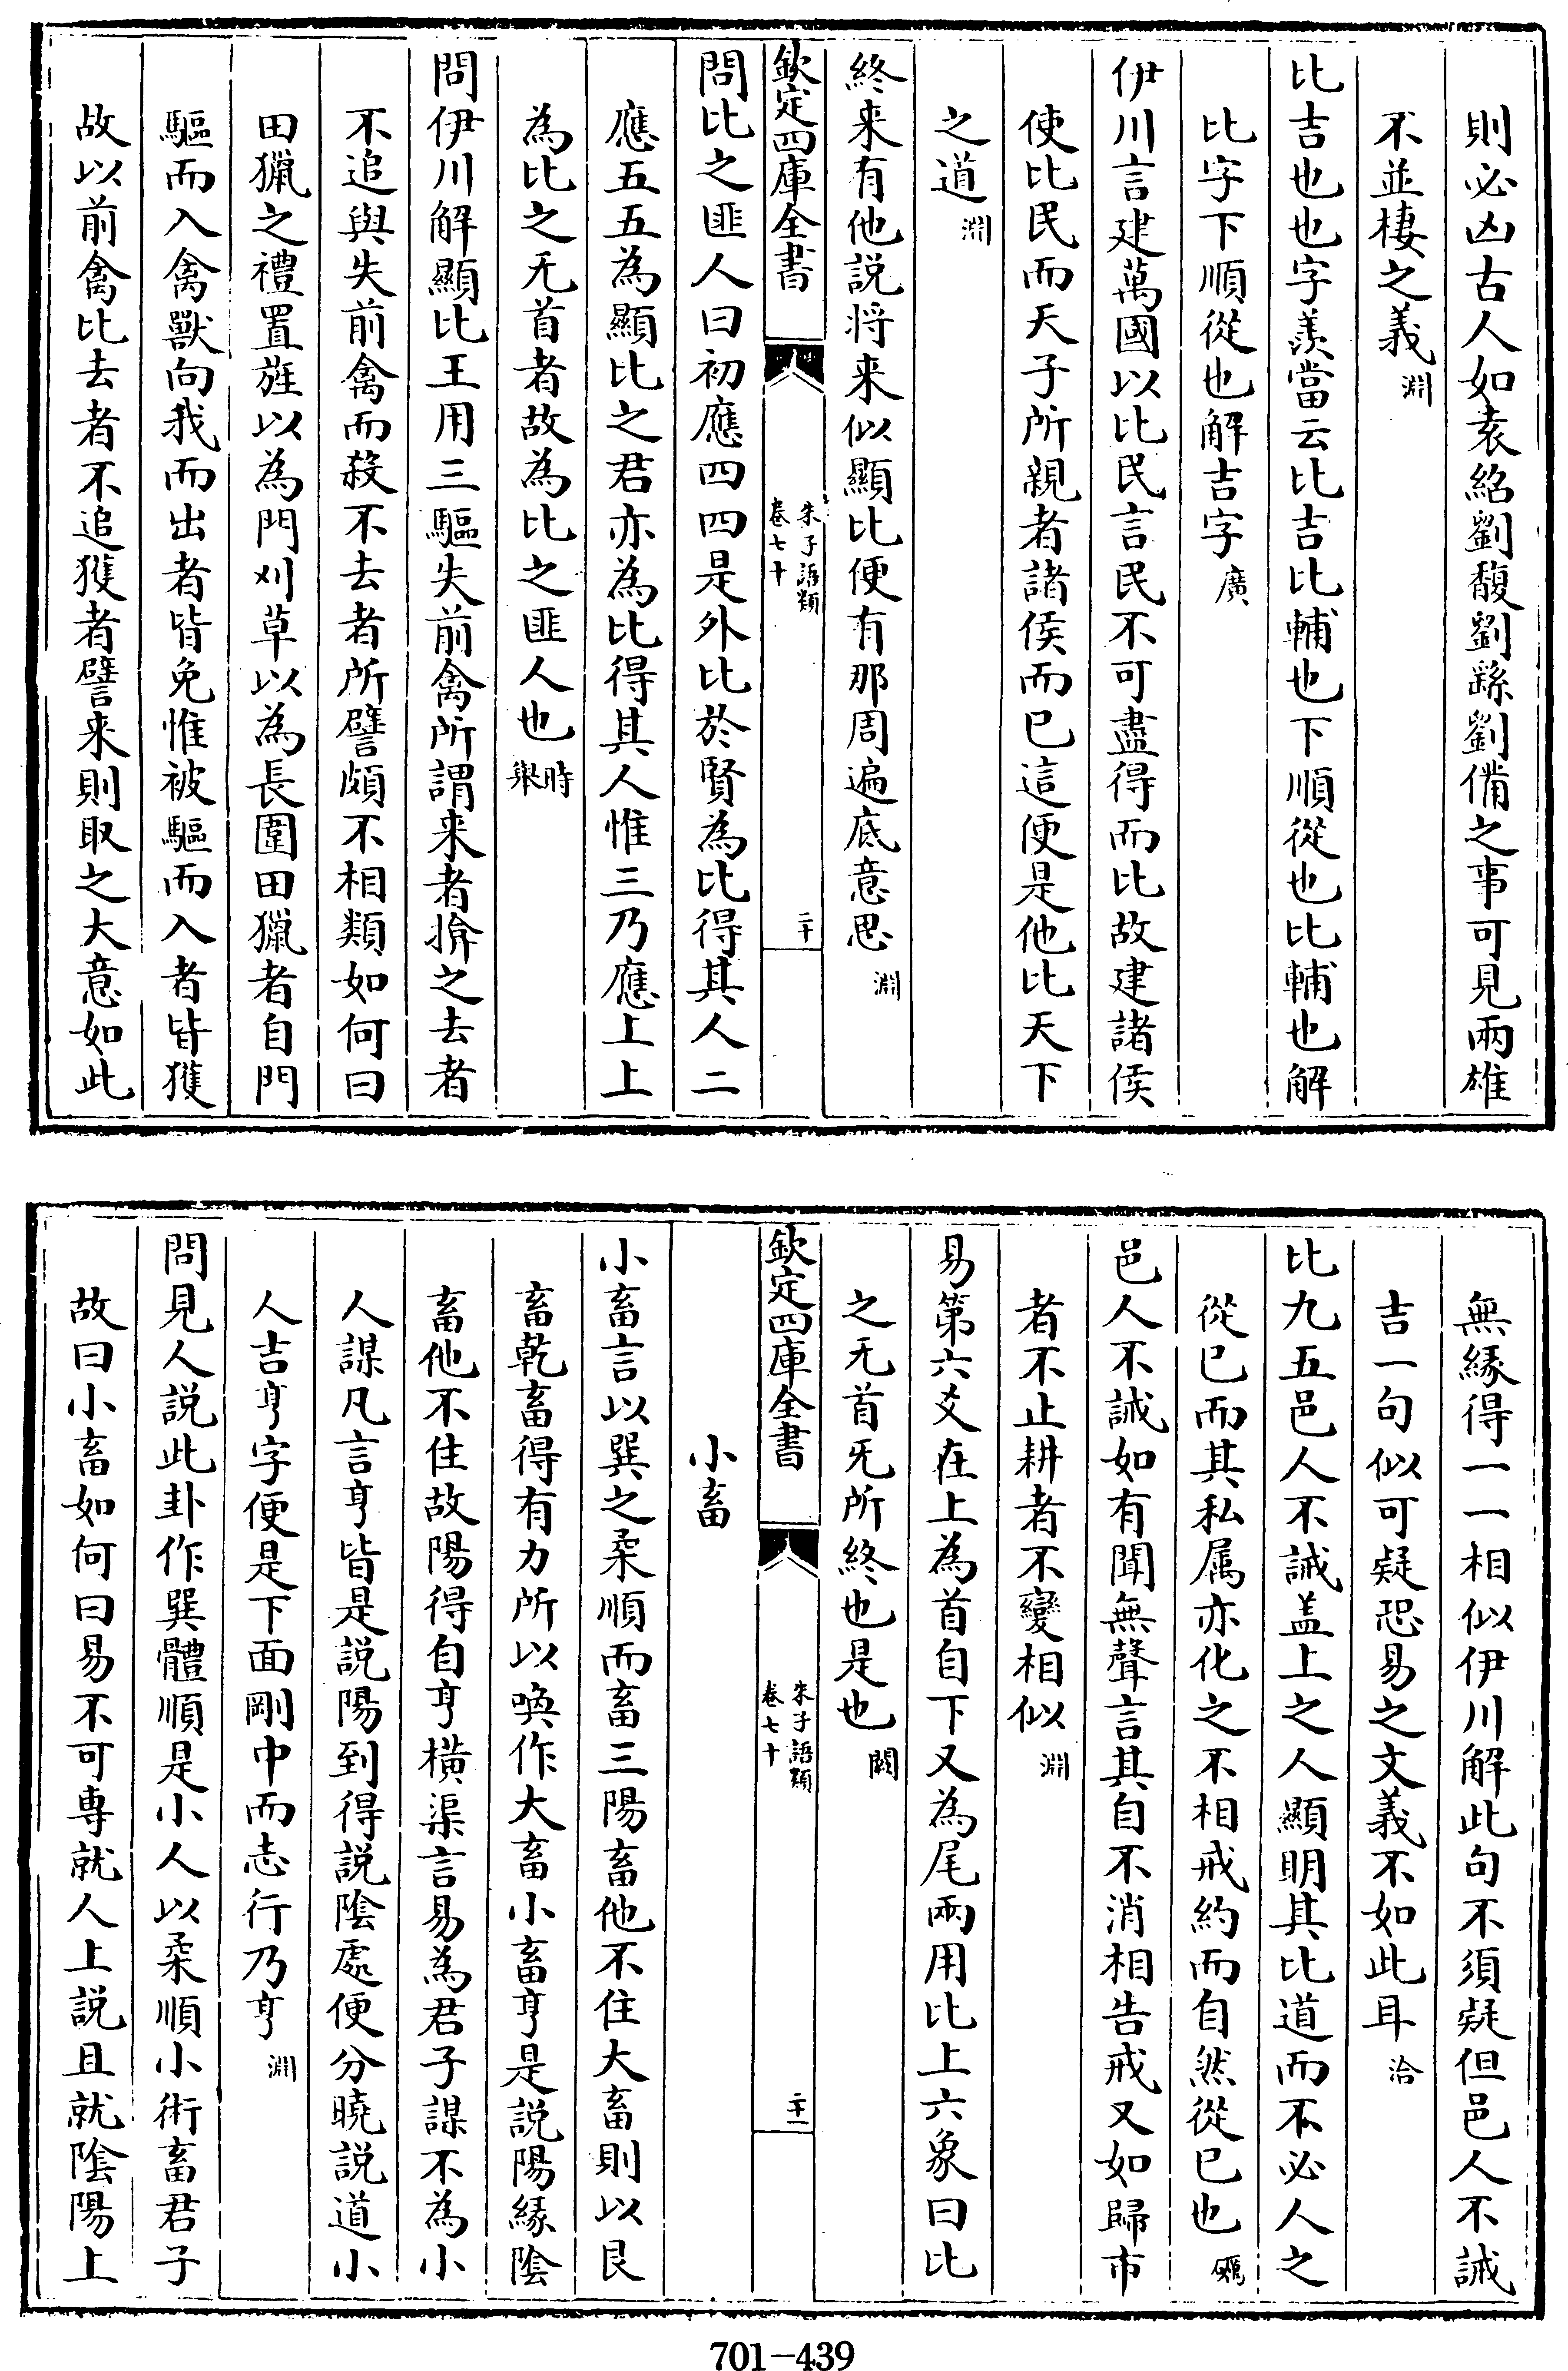 則必凶古人如袁紹劉馥劉繇劉備之事可見兩雄
不並棲之義淵
比吉也也字羡當云比吉比輔也下順從也比輔也解
比字下順從也解吉字廣
伊川言建萬國以比民言民不可盡得而比故建諸侯
使比民而天子所親者諸侯而已這便是他比天下
之道淵
終来有他説将来似顯比便有那周遍底意思淵
欽定四庫全書
朱子語類
卷七十
二十
問比之匪人曰初應四四是外比於賢為比得其人二
應五五為顯比之君亦為比得其人惟三乃應上上
為比之无首者故為比之匪人也時舉
問伊川解顯比王用三驅失前禽所謂来者揜之去者
不追與失前禽而殺不去者所譬頗不相類如何曰
田獵之禮置旌以為門刈草以為長圍田獵者自門
驅而入禽獸向我而出者皆免惟被驅而入者皆獲
故以前禽比去者不追獲者譬来則取之大意如此
無縁得一一相似伊川解此句不須疑但邑人不誡
吉一句似可疑恐易之文義不如此耳洽
比九五邑人不誡盖上之人顯明其比道而不必人之
從已而其私属亦化之不相戒約而自然從已也礪
邑人不誡如有聞無聲言其自不消相告戒又如歸市
者不止耕者不變相似淵
易第六爻在上為首自下又為尾兩用比上六象曰比
之无首无所終也是也閎
欽定四庫全書
朱子語類
卷七十
二十一
小畜
小畜言以巽之柔順而畜三陽畜他不住大畜則以艮
畜乾畜得有力所以喚作大畜小畜亨是説陽縁陰
畜他不住故陽得自亨横渠言易為君子謀不為小
人謀凡言亨皆是説陽到得説陰處便分曉説道小
人吉亨字便是下面剛中而志行乃亨淵
問見人説此卦作巽體順是小人以柔順小術畜君子
故曰小畜如何曰易不可専就人上説且就陰陽上
701-439